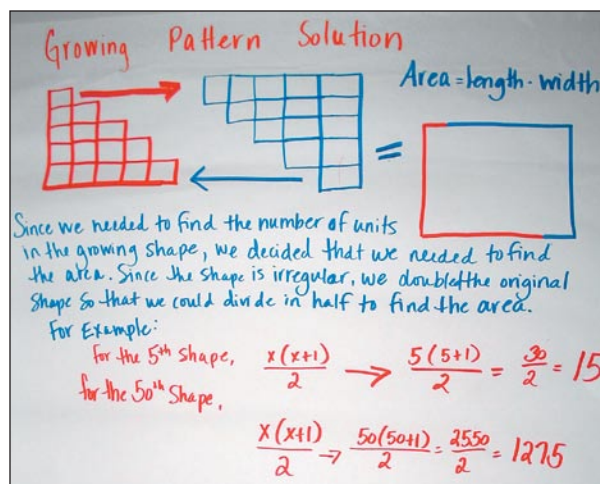 Growing Pattern Solution
Area = length · width
=
Since we needed to find the number of units
in the growing shape, we decided that we needed to find
the area. Since the shape is irregular, we doubled the original
shape so that we could divide in half to find the area.
For Example:
for the 5th shape, x(x+1)/2 → 5(5+1)/2 = 30/2 = 15
for the 50th shape,
x(x+1)/2 → 50(50+1)/2 = 2550/2 = 1275